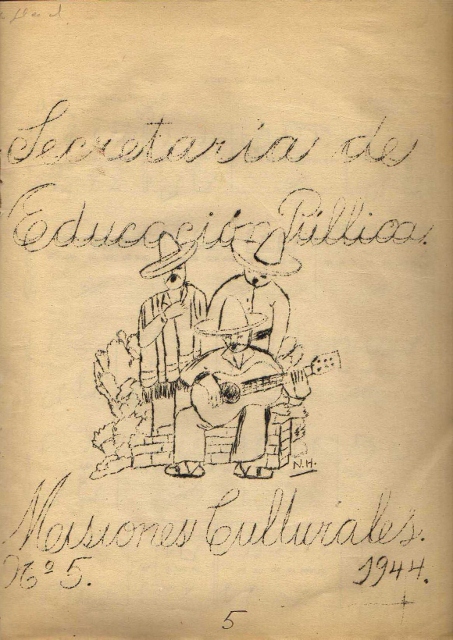 Secretaría de
Educación Pública.
N.H.
Misiones Culturales.
Nº 5.
1944.
5